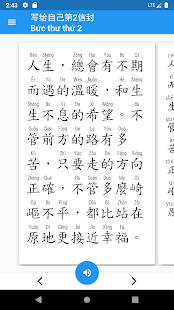 2:43
LTE
写给自己第2信封
Bức thư thứ 2
Rén Shēng Zǒng Huì Yǒu Bù Qī
人生，總會有不期
Ér Yù De Wēn Nuǎn Hé Shēng
而遇的溫暖，和生
Shēng Bù Xī De Xī Wàng Bù
生不息的希望。不
Guǎn Qián Fāng De Lù Yǒu Duō
管前方的路有多
Kǔ Zhǐ Yào Zǒu De Fāng Xiàng
苦，只要走的方向
Zhèng Què Bù Guǎn Duō Me Qí
正確，不管多麼崎
Qū Bù Píng Dōu Bǐ Zhàn Zài
嶇不平，都比站在
Yuán Dì Gèng Jiē Jìn Xìng Fú
原地更接近幸福。